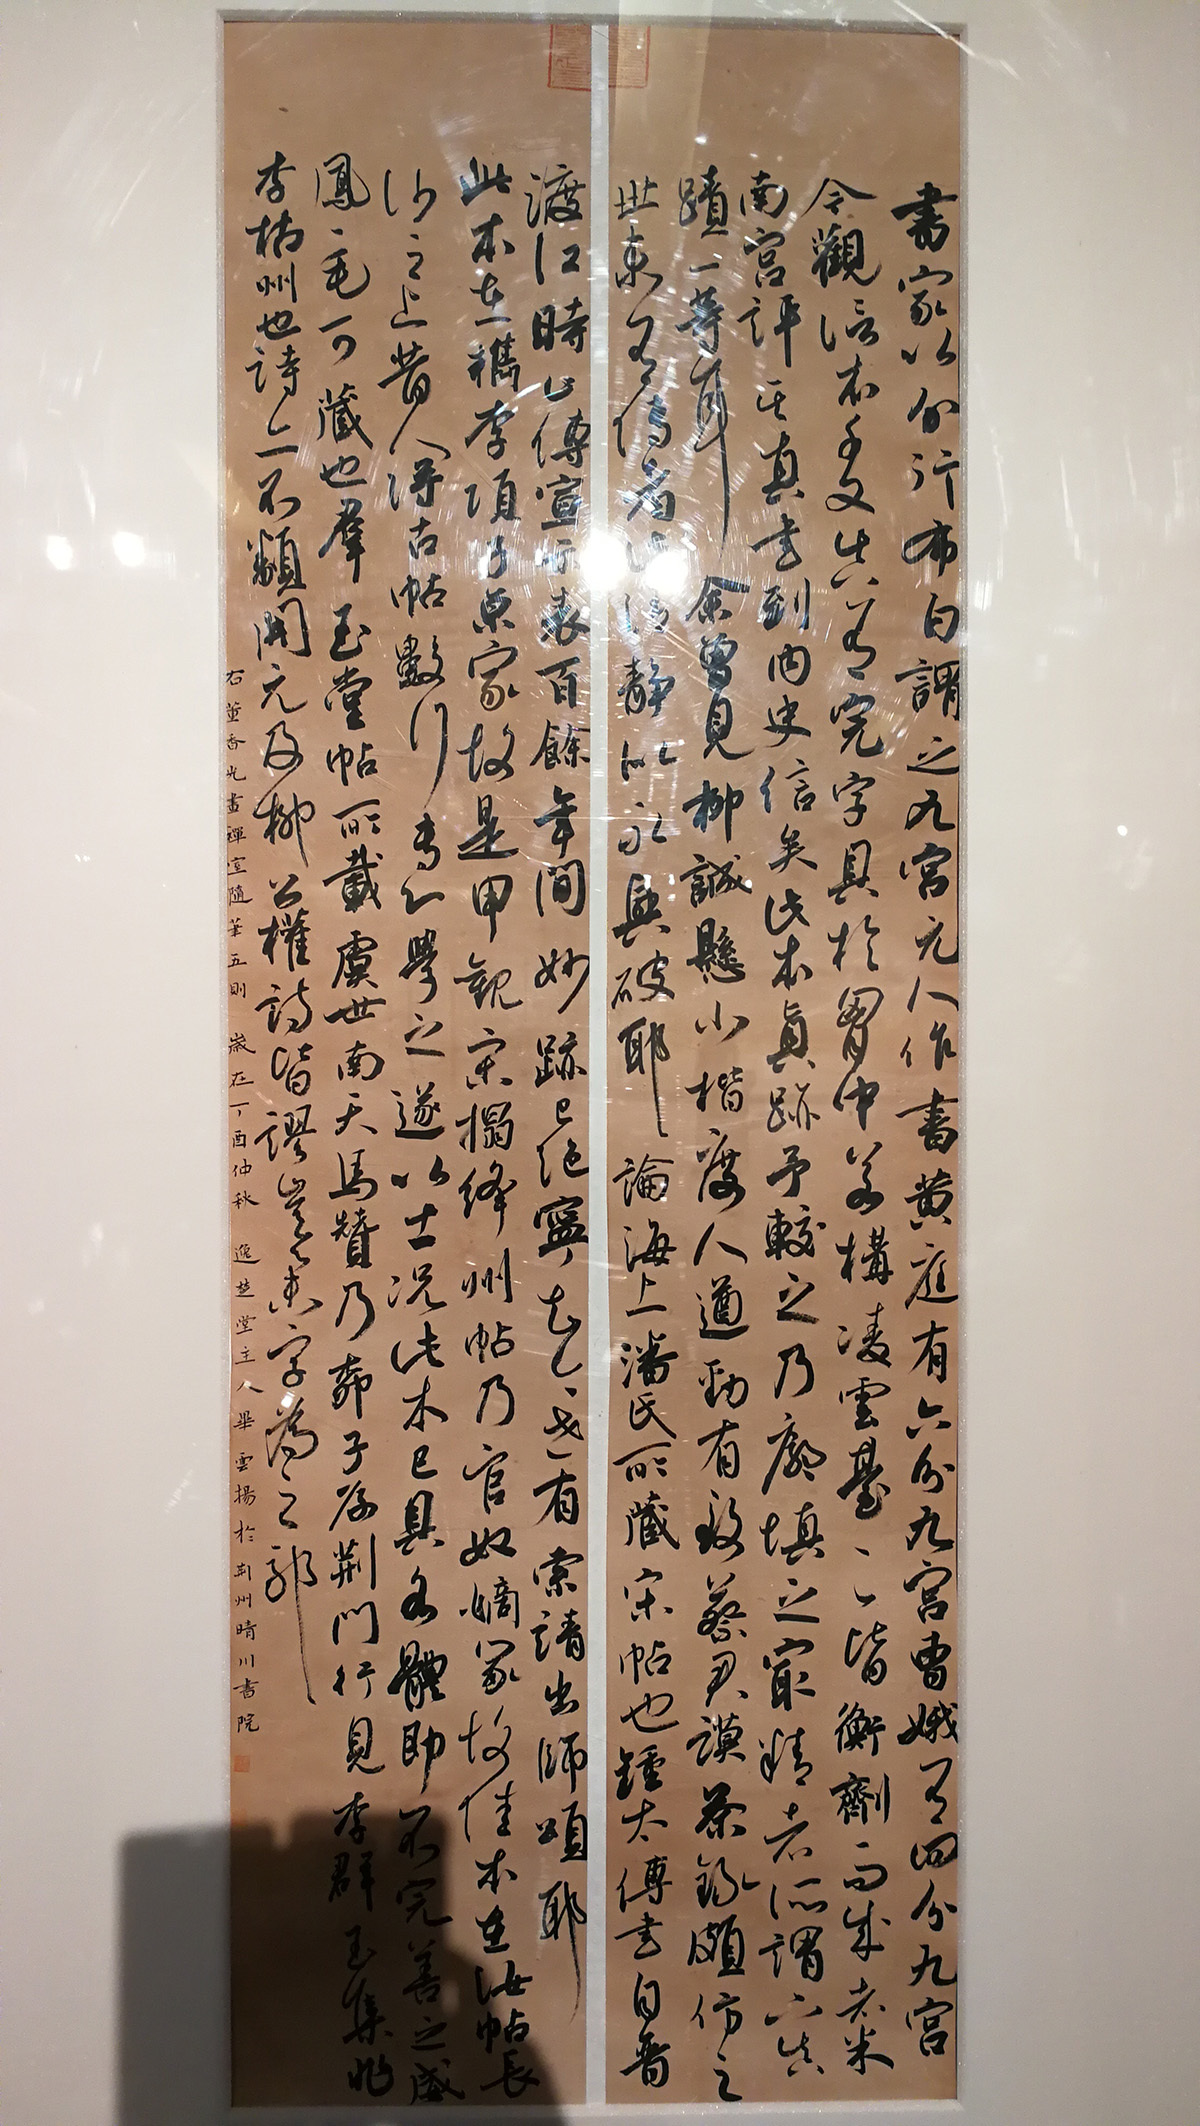 書家以分行布白謂之九宮元人作書黃庭有六分九宮曹娥有四分九宮
今觀信本千文真有完字具於胸中若構凌雲臺一一皆衡劑而成者米
南宮評其真書到內史信矣此本真跡予較之乃廓填之最精者所謂下真
蹟一等耳 余曾見柳誠懸小楷度人遒勁有致蔡君謨茶錄頗仿之
論海上潘氏所藏宋帖也鍾太傅書自晉
渡江時止傳宣示表百餘年間妙跡已絕寧知今世有索靖出師頌耶
此本在檇李項子京家故是甲觀宋搨絳州帖乃官奴嫡冢故佳本在汝帖長
沙之上昔人得古帖數行專心學之遂以士況此本已具各體即不完善之感
鳳毛可藏也群玉堂帖所載虞世南天馬贊乃荊門行見李群玉集非
李梧州也詩亦不類開元及柳公權詩皆謬字為之耶
右董香光畫禪室隨筆五則 歲在丁酉仲秋 逸楚堂主人畢雲揚於荊州晴川書院